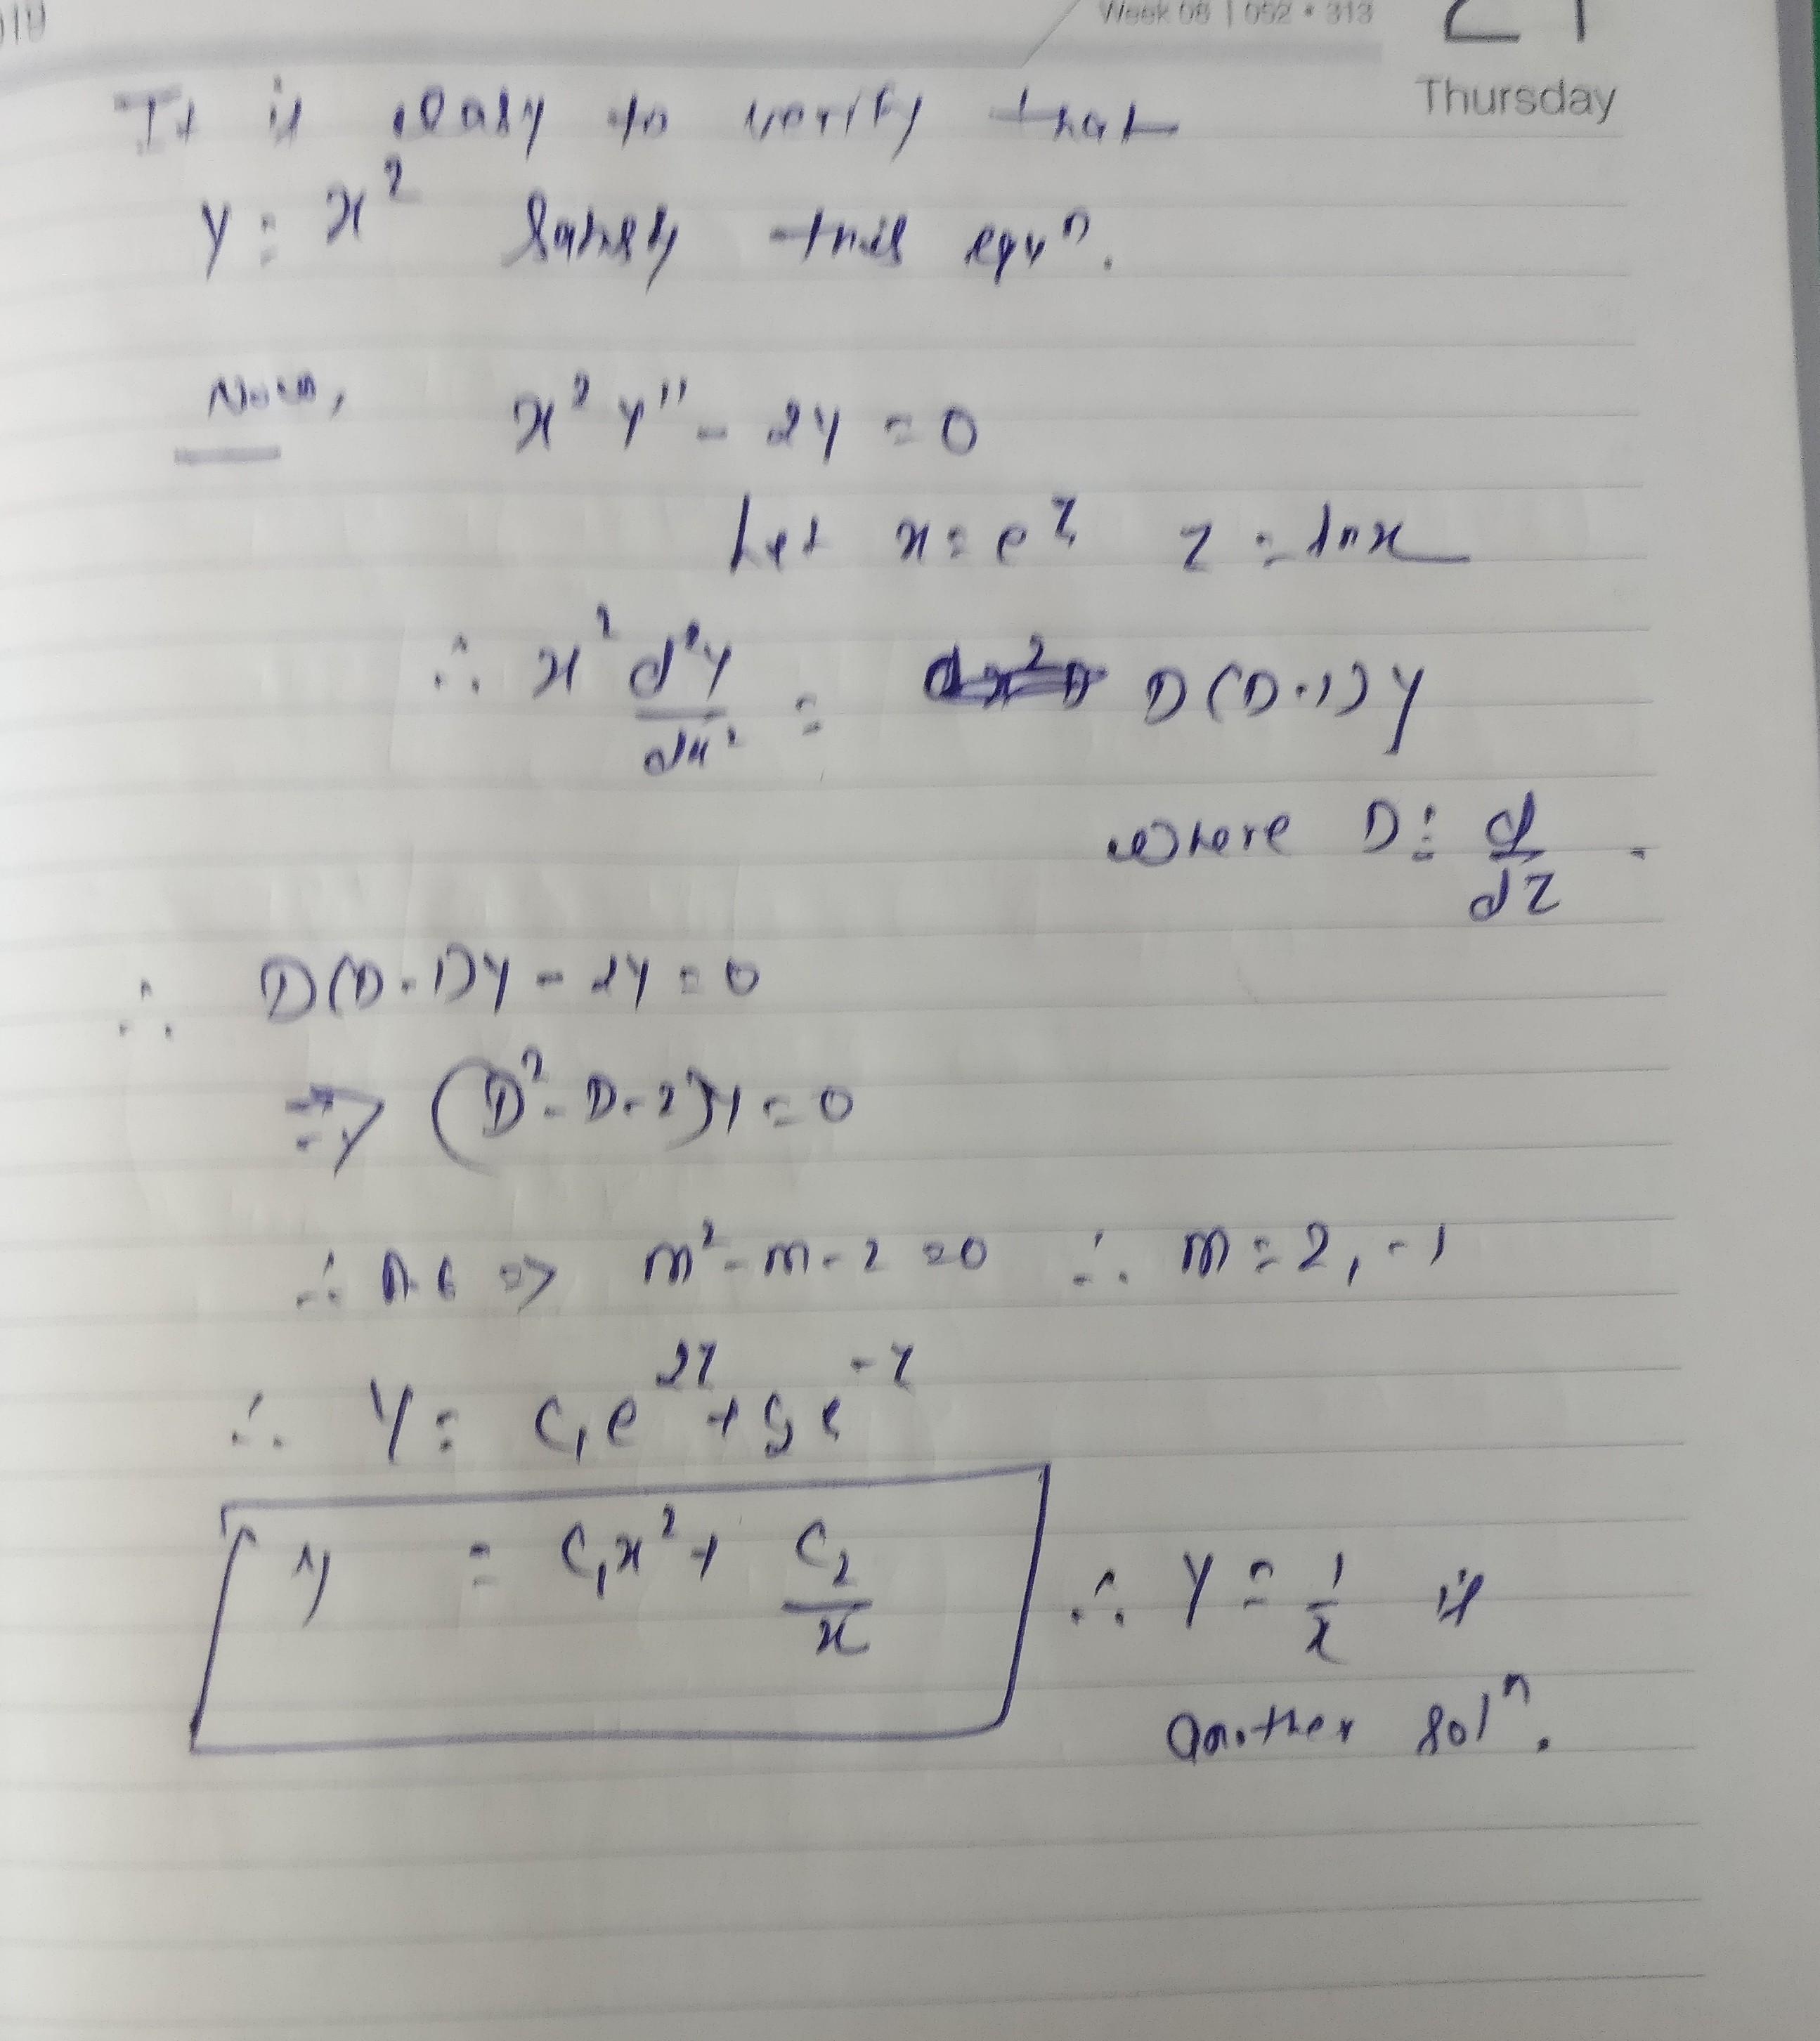 Week 08 | 052 • 313
Thursday
It is easy to verify that
y = x² satisfy this equⁿ.
Now, x² y'' - 2y = 0
Let x = e^z z = ln x
∴ x² d²y/dx² = D(D-1)y
where D ≡ d/dz .
∴ D(D-1)y - 2y = 0
⇒ (D² - D - 2)y = 0
∴ A.E ⇒ m² - m - 2 = 0 ∴ m = 2, -1
∴ y = C₁e^{2z} + C₂e^{-z}
y = C₁x² + C₂/x ∴ y = 1/x is
another solⁿ.